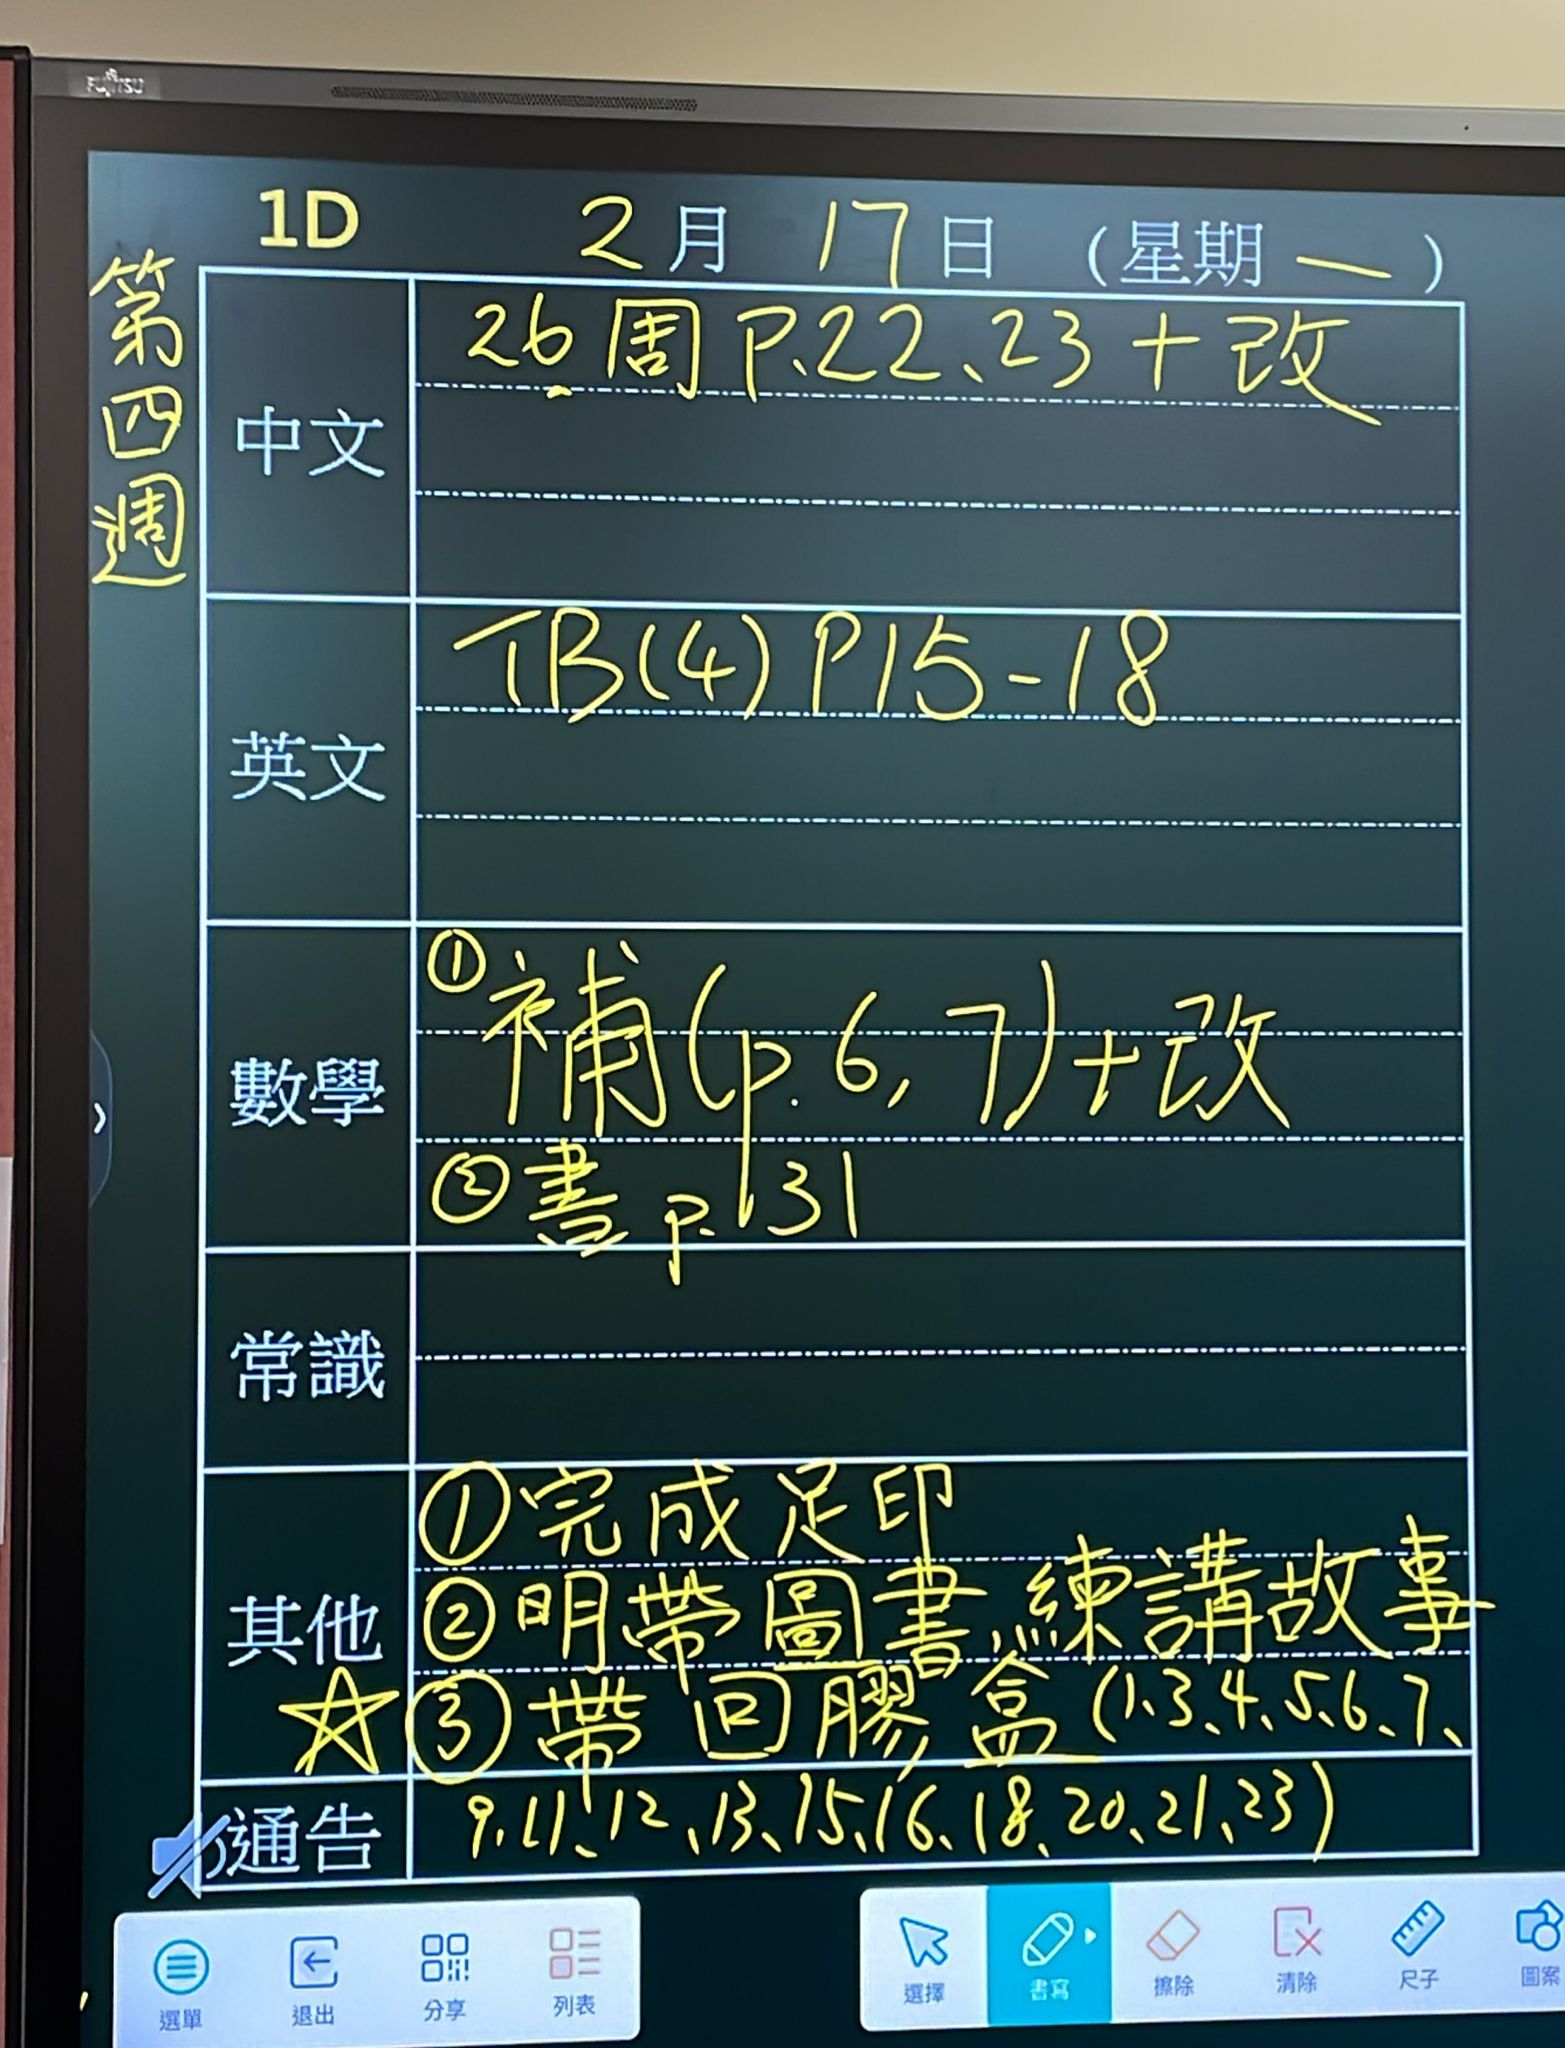 FUJITSU
1D 2月17日(星期一)
第四週
中文
26周 P.22、23+改
英文
TB(4) P15-18
數學
①補(p.6,7)+改
②書p.131
常識
其他
①完成足印
②明帶圖書、練講故事
☆③帶回膠盒(1、3、4、5、6、7、
通告
9、11、12、13、15、16、18、20、21、23)
選單
退出
分享
列表
選擇
書寫
擦除
清除
尺子
圖案